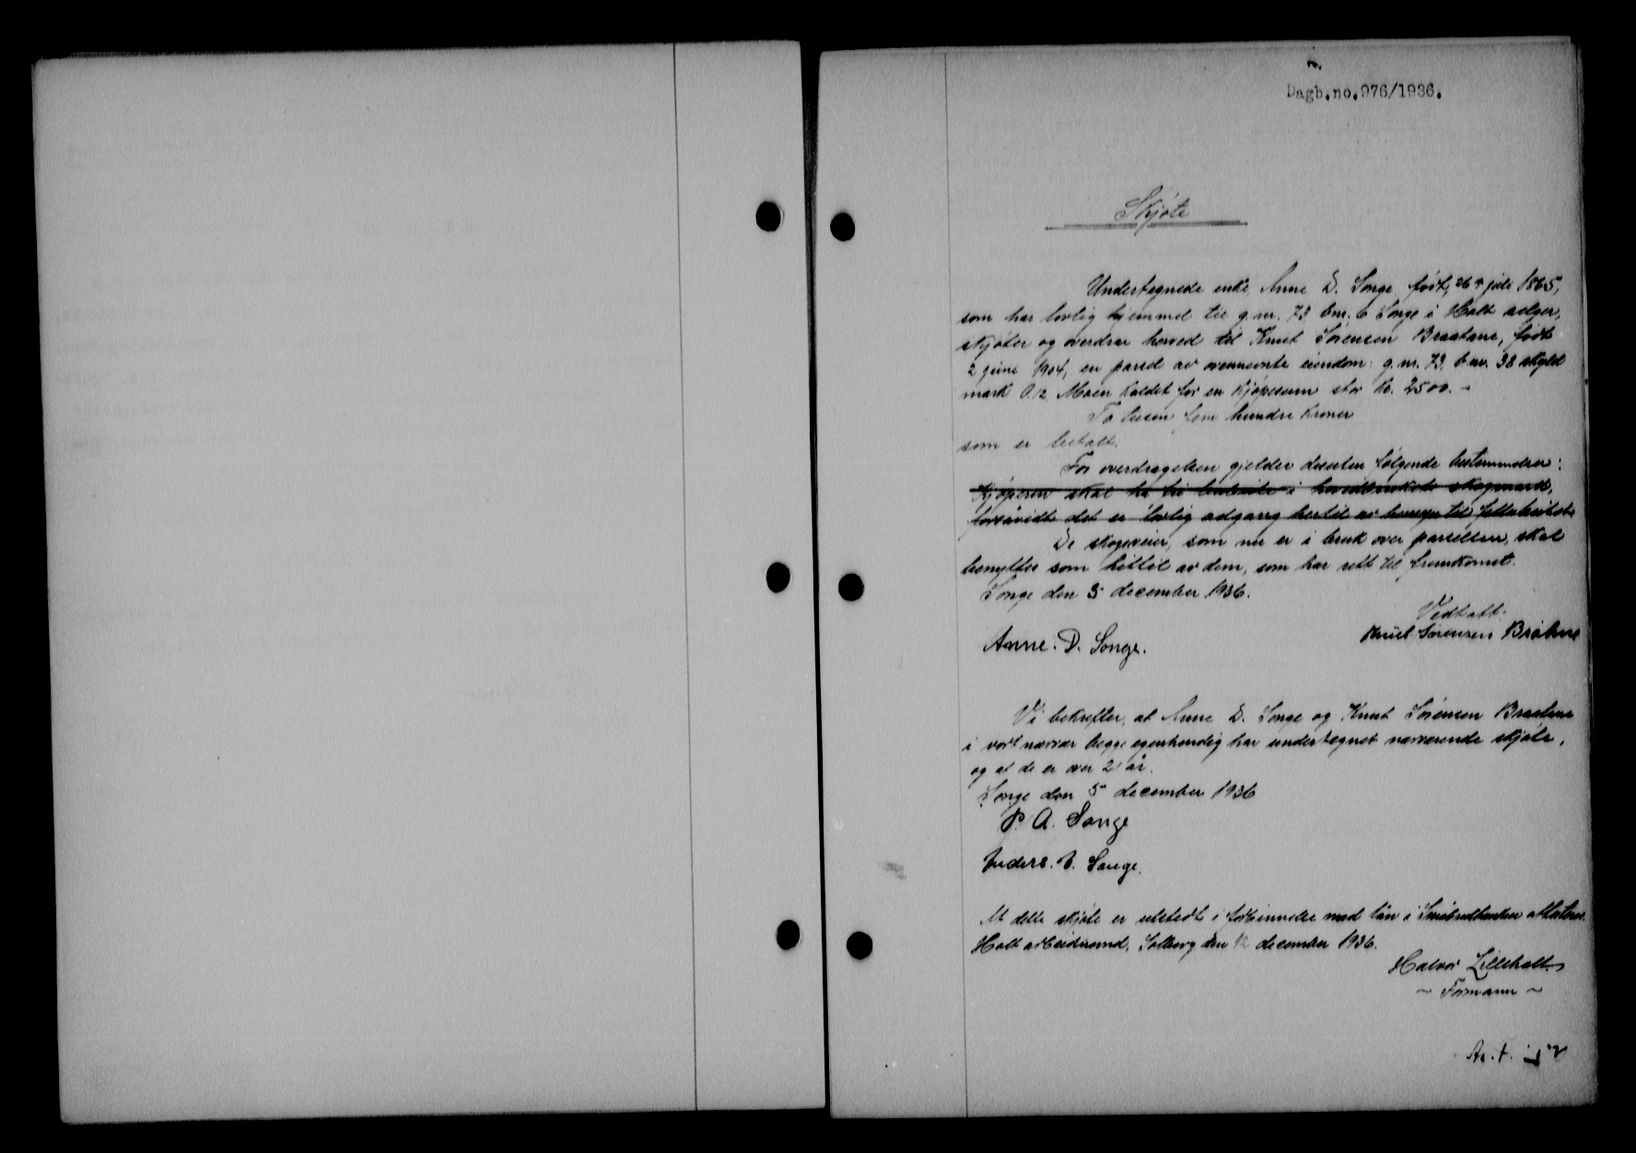 Dagb.no.976/1936.
Skjøte
Undertegnede enke Anne D. Songe, født 26 juli 1865,
som har lovlig hjemmel til g.nr. 73 bnr. 6 Songe i Holt selger,
skjøter og overdrar herved til Knut Sörensen Braatane, født
2 juni 1904, en parsel av ovennevnte eiendom: g.nr. 73, b.nr. 38 skyld
mark 0.12 Moen kaldet for en kjøpesum stor kr. 2500.-
To tusen fem hundre kroner
som er betalt.
For overdragelsen gjelder desuten følgende bestemmelser:
Kjøperen skal ha fri i skogmark,
forsåvidt det er lovlig adgang hertil av hensyn til
De skogsveier, som nu er i bruk over parsellen, skal
benyttes som hittil av dem, som har rett til fremkomst.
Songe den 5 december 1936.
Vedtatt:
Knut Sørensen Bråtane
Anne. D. Songe.
Vi bekrefter, at Anne D. Songe og Knut Sörensen Braatane
i vort nærvær begge egenhendig har undertegnet nærværende skjøte,
og at de er over 21 år.
Songe den 5 december 1936
P. A. Songe
Anders. D. Songe.
At dette skjøte er utstedt i forbinnelse med lån i Småbrukbanken attesteres.
Holt arbeidsnemd, Solberg den 12 december 1936.
Halvor Lilleholt
- Formann -